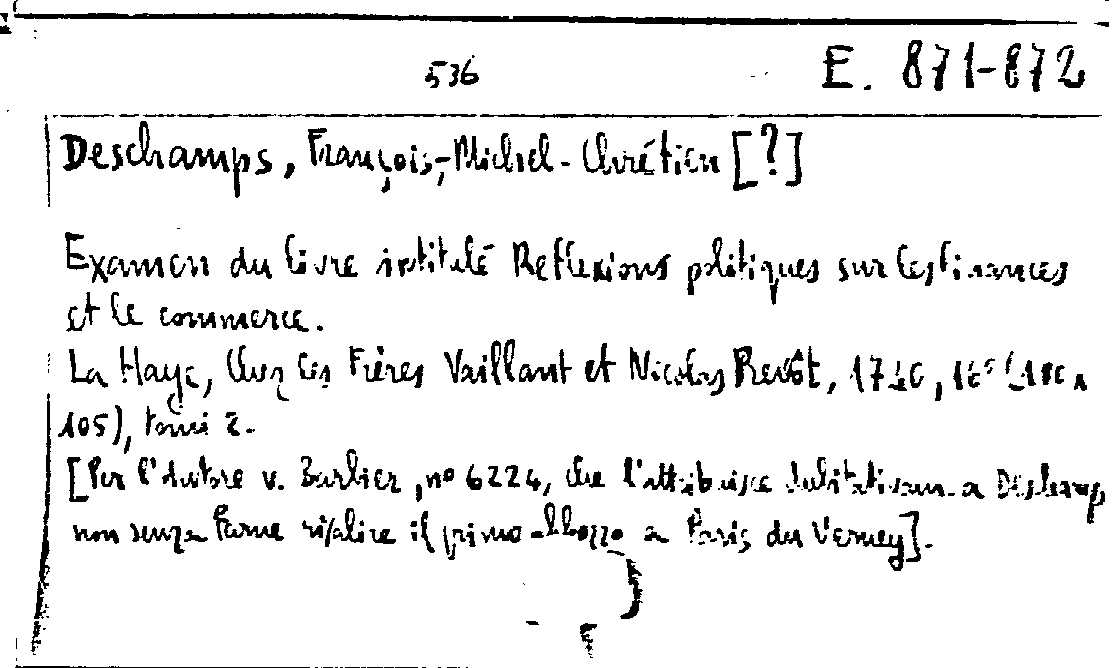 536
E. 871-872
Deschamps, François-Michel-Chrétien [?]
Examen du livre intitulé Reflexions politiques sur les finances
et le commerce.
La Haye, Chez les Frères Vaillant et Nicolas Prevôt, 1740, 16°
105), tomi 2.
[Per l'Autore v. Barbier, n° 6224, che l'attribuisce dubitativam. a Deschamps
non senza farne risalire il primo abbozzo a Paris du Verney].